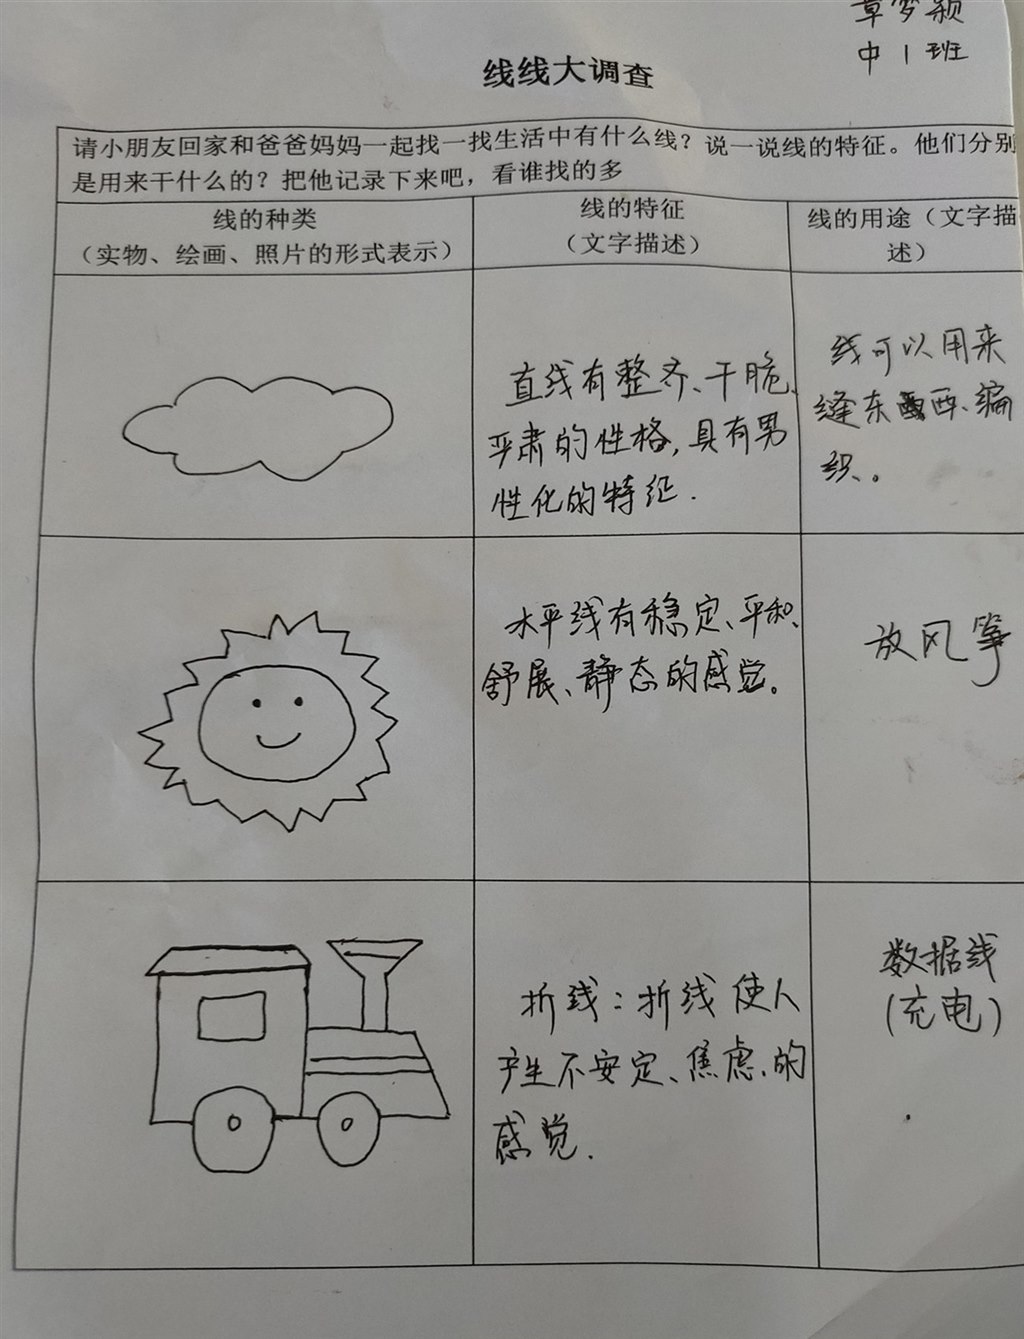 章梦颖
中1班
线线大调查
请小朋友回家和爸爸妈妈一起找一找生活中有什么线？说一说线的特征。他们分别
是用来干什么的？把他记录下来吧，看谁找的多
线的种类
（实物、绘画、照片的形式表示）
线的特征
（文字描述）
线的用途（文字描
述）
直线有整齐、干脆、
严肃的性格，具有男
性化的特征.
线可以用来
缝东西、编
织、。
水平线有稳定、平和、
舒展、静态的感觉。
放风筝
折线：折线使人
产生不安定、焦虑、的
感觉.
数据线
(充电)